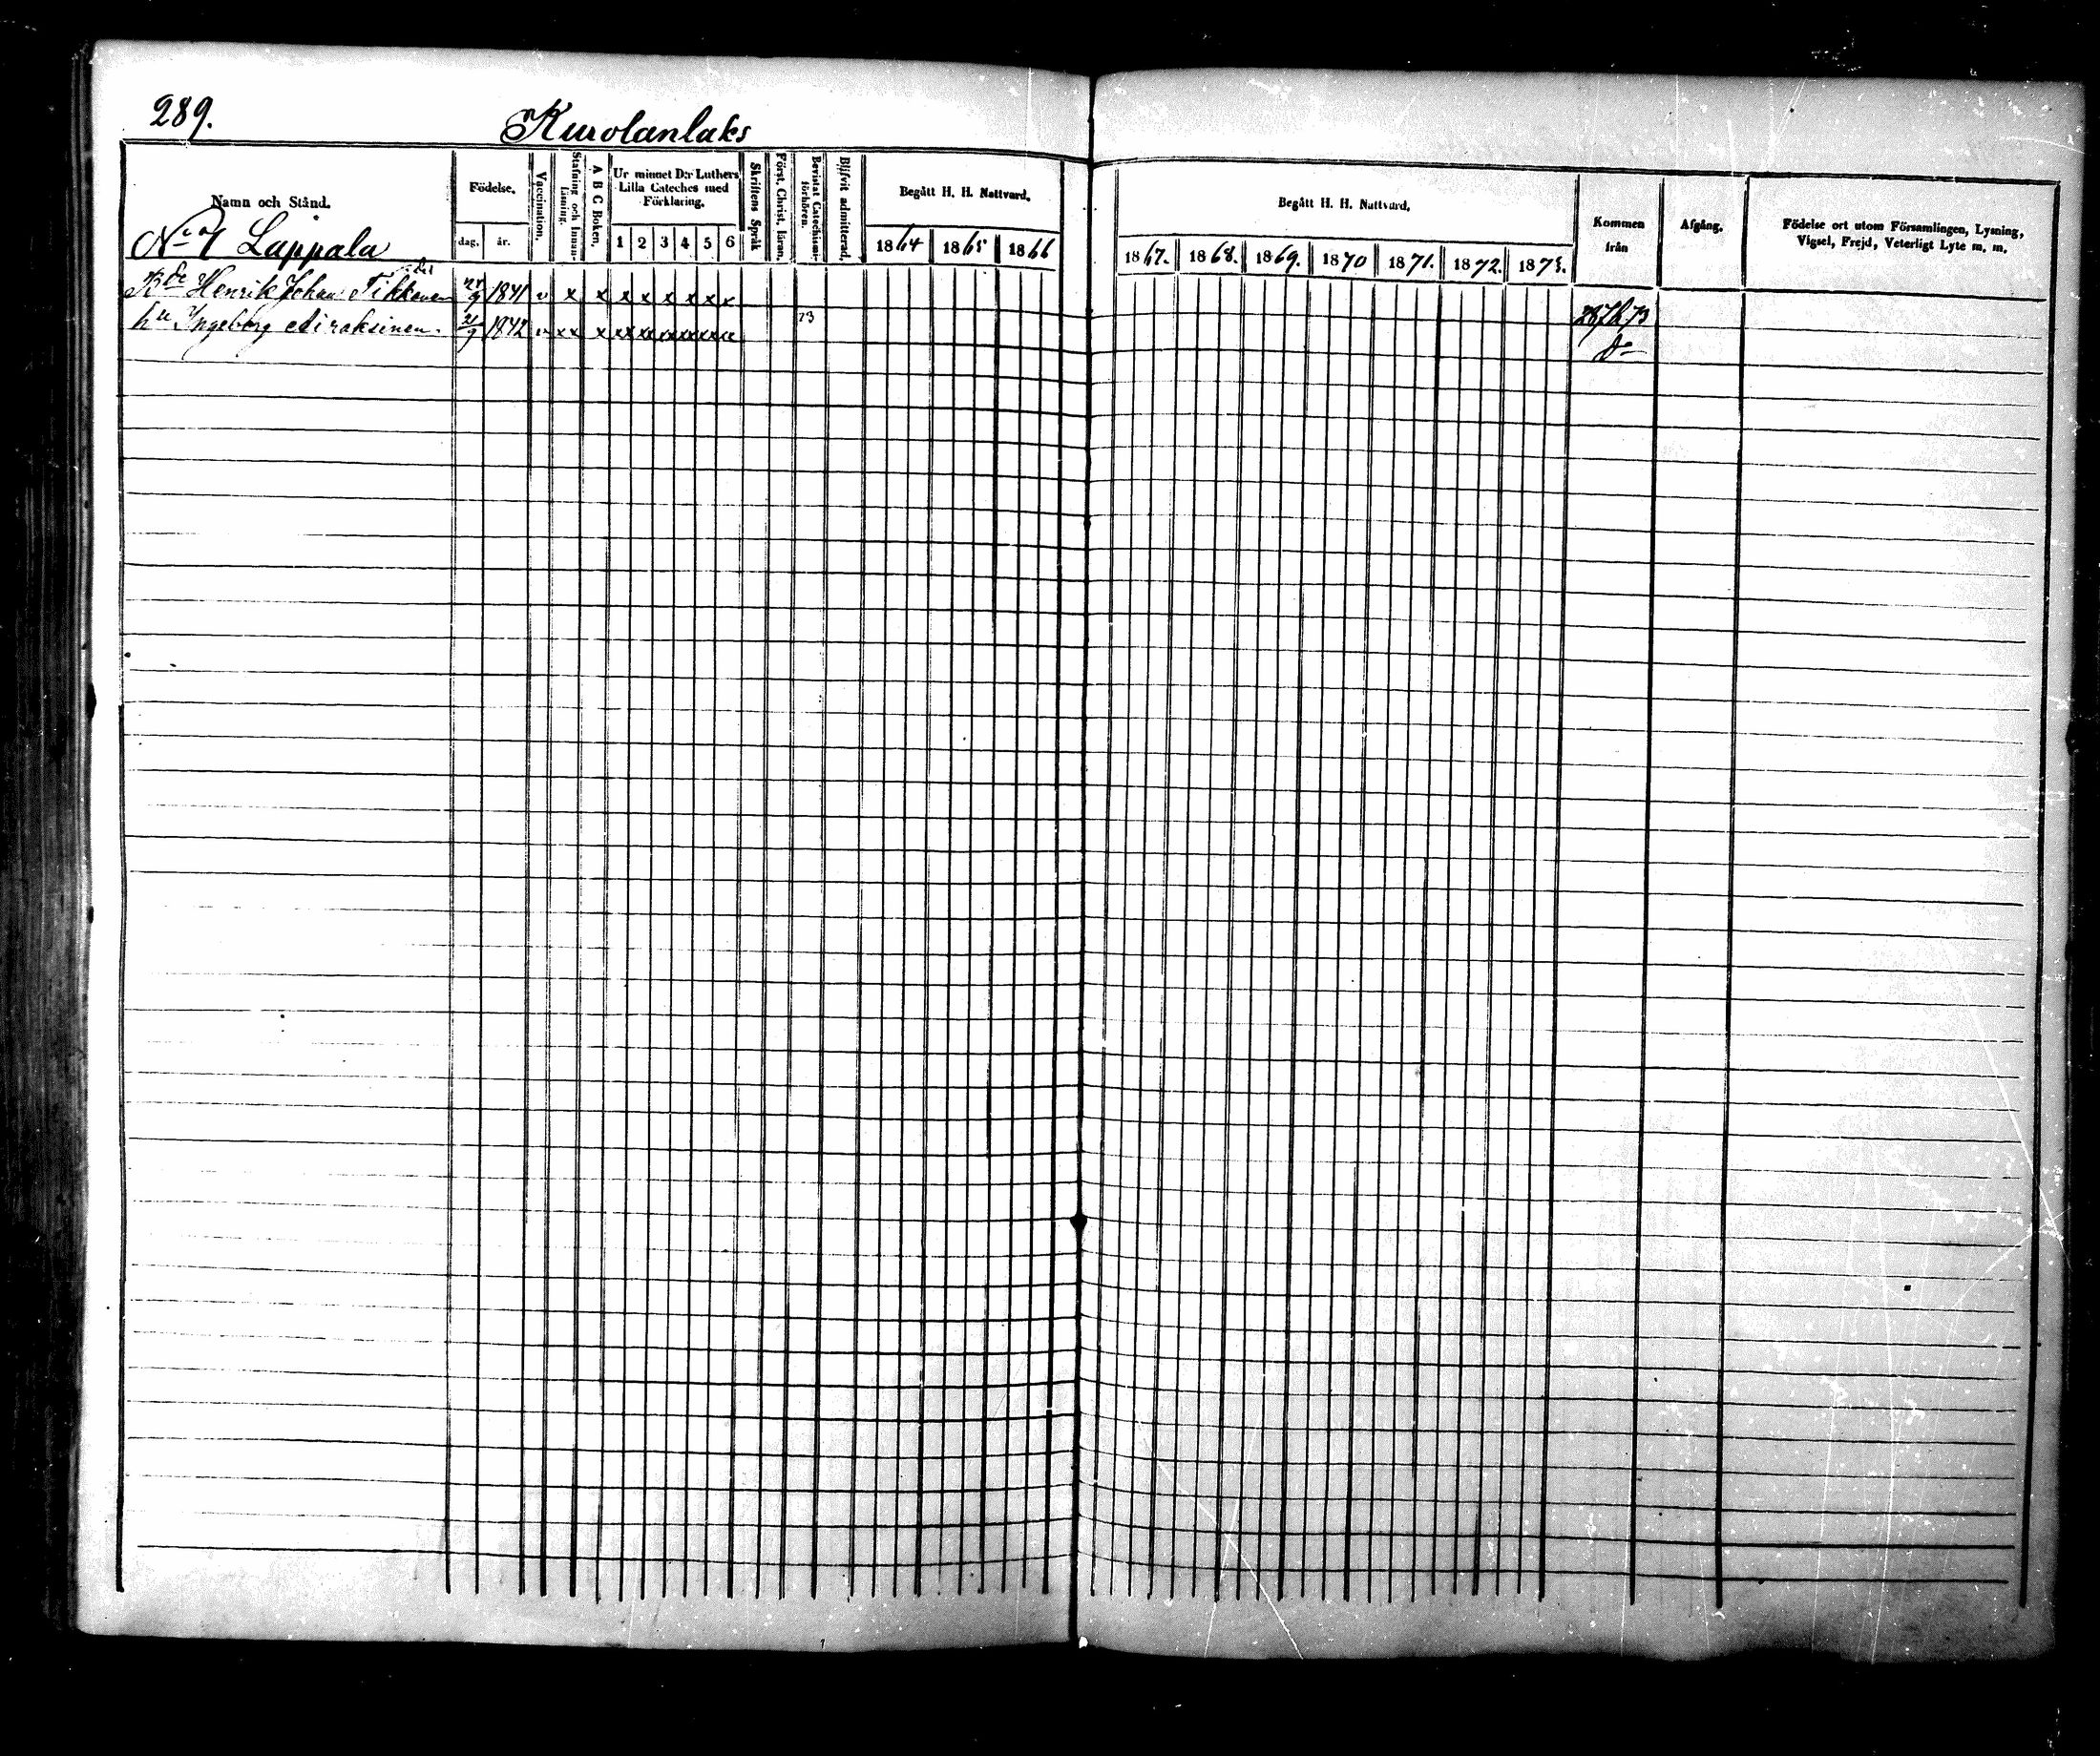 289.
Kurolanlaks
Namn och Stånd.
Födelse.
dag. år.
Vaccination.
Stafning och Innanläsning.
A B C Boken.
Ur minnet D:r Luthers Lilla Cateches med Förklaring.
1 2 3 4 5 6
Skriftens Språk
Först. Christ. läran.
Bevistat Catechismi-förhören.
Blifvit admitterad.
Begått H. H. Nattvard.
1864 1865 1866
Begått H. H. Nattvard.
1867. 1868. 1869. 1870 1871. 1872. 1873.
Kommen från
Afgång.
Födelse ort utom Församlingen, Lysning, Vigsel, Frejd, Veterligt Lyte m. m.
Lappala
Henrik Johan Tikkanen 1841 v x x x x x x x x
hu Ingeborg Airaksinen. 21/9 1842 v xx x xx xx xx xx xx xx 73
do